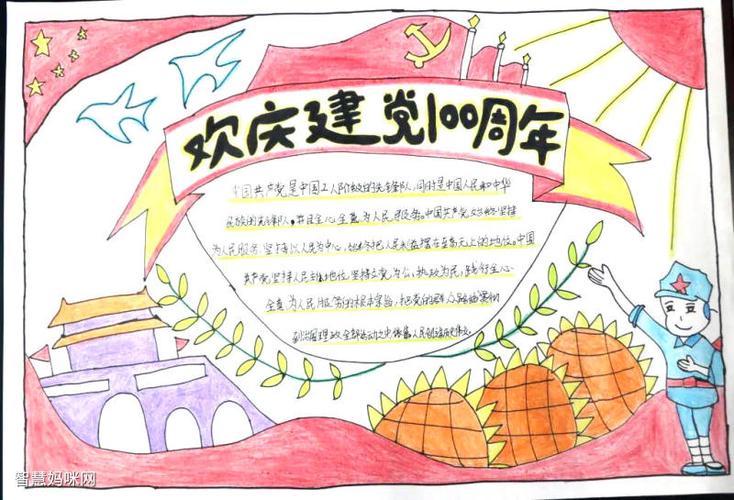 欢庆建党100周年
中国共产党是中国工人阶级的先锋队，同时是中国人民和中华
民族的先锋队，并且全心全意为人民服务。中国共产党始终坚持
为人民服务，坚持以人民为中心，始终把人民利益摆在至高无上的地位。中国
共产党坚持人民主体地位，坚持立党为公，执政为民，践行全心
全意为人民服务的根本宗旨，把党的群众路线贯彻
到治国理政全部活动之中，依靠人民创造历史伟业。
智慧妈咪网